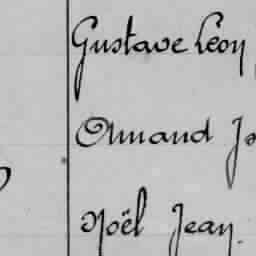 Gustave Léon
Armand
Noël Jean